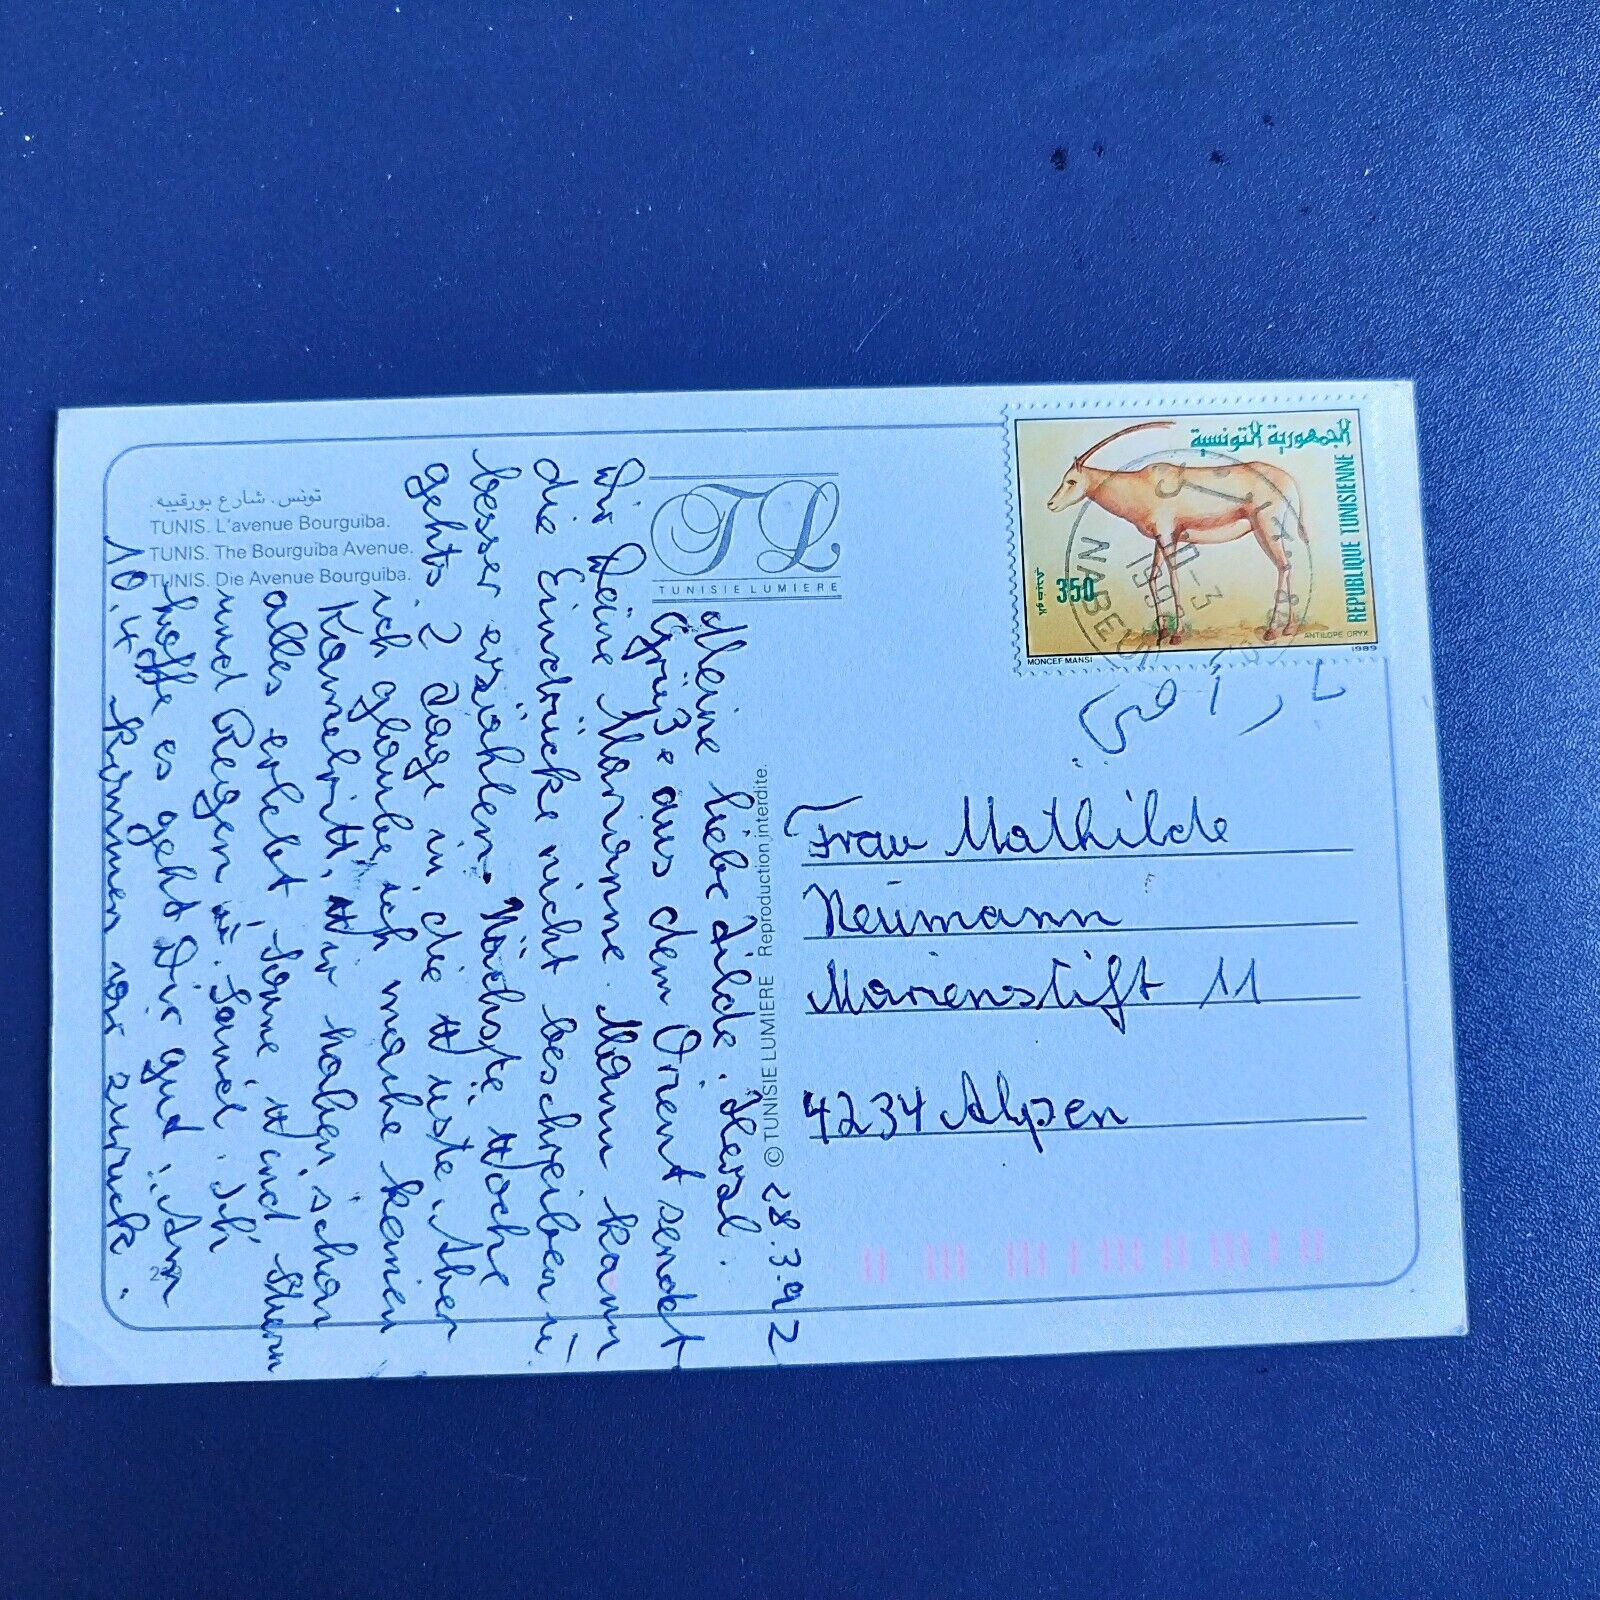 تونس. شارع بورقيبه.
TUNIS. L'avenue Bourguiba.
TUNIS. The Bourguiba Avenue.
TUNIS. Die Avenue Bourguiba.
TL
TUNISIE LUMIERE
© TUNISIE LUMIERE Reproduction interdite.
28.3.92
Meine liebe Tilde. Herzl.
Grüße aus dem Orient sendet
Dir Deine Marianne. Mann kann
die Eindrücke nicht beschreiben u.
besser erzählen. Nächste Woche
gehts 2 Tage in die Wüste. Aber
ich glaube ich mache keinen
Kamelritt. Wir haben schon
alles erlebt, Sonne, Wind, Sturm
und Regen u. Sand. Ich
hoffe es geht Dir gut. Am
10.4 kommen wir zurück.
الجمهورية التونسية
REPUBLIQUE TUNISIENNE
350
ANTILOPE ORYX
MONCEF MANSI
1989
NABEUL
Frau Mathilde
Neumann
Marienstift 11
4234 Alpen